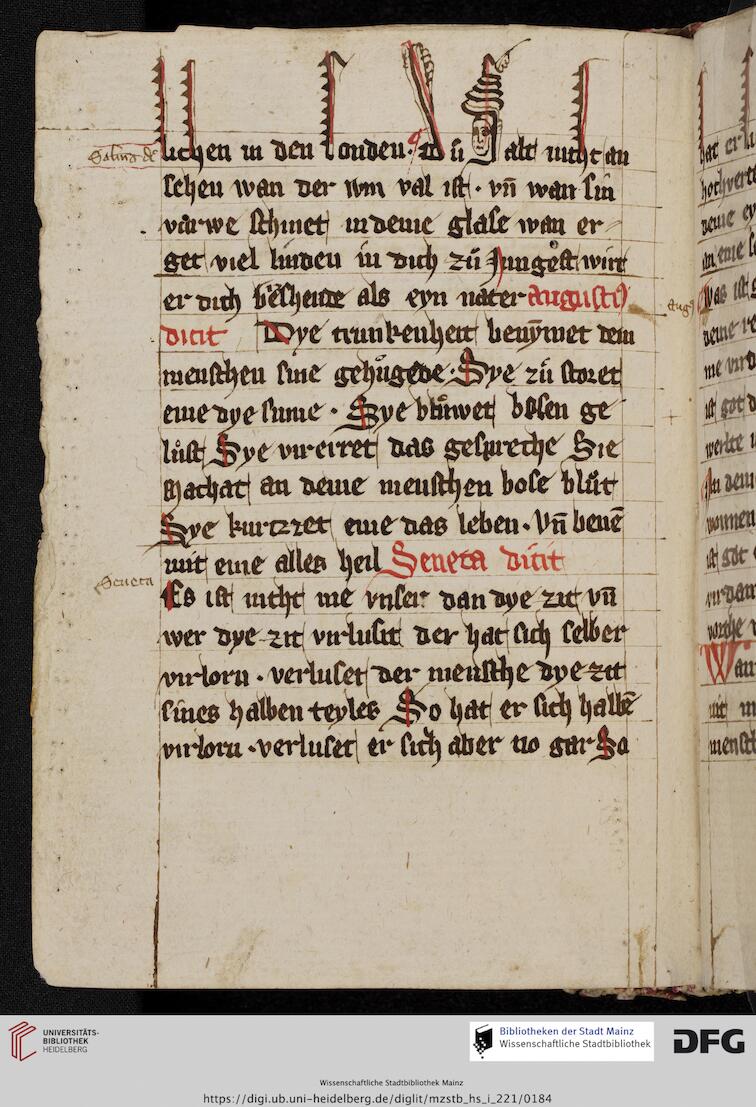 Salmō dē
lichen in den londen. Dů salt nicht an
sehen wan der win val ist. vn̄ wan sin
värwe schinet in deme glase wan er
get viel linden in dich zů Jungest wirt
er dich beshende als eyn nater Augustꝰ
dicit Dye trunkenheit benymet dem
menschen sine gehůgede. Sye zů storet
eme dye sinne. Sye blůwet bosen ge
lůst Sye virerret das gespreche Sie
machat an deme menschen bose blůt
Sye kurtzzet eme das leben. Vn̄ benē
mit eme alles heil Seneca dicit
Seneca
Es ist nicht me vnser dan dye zit vn̄
wer dye zit virlusit der hat sich selber
virlorn. verluset der mensche dye zit
sines halben teyles So hat er sich halbē
virlorn. verluset er sich aber no gar So
Augꝰ
hat er
hochverte
deme
an eme
Was ist
deme
me
ist got
werke
An dem
ist got
Wan
nit
mensch
UNIVERSITÄTS-
BIBLIOTHEK
HEIDELBERG
Bibliotheken der Stadt Mainz
Wissenschaftliche Stadtbibliothek
DFG
Wissenschaftliche Stadtbibliothek Mainz
https://digi.ub.uni-heidelberg.de/diglit/mzstb_hs_i_221/0184